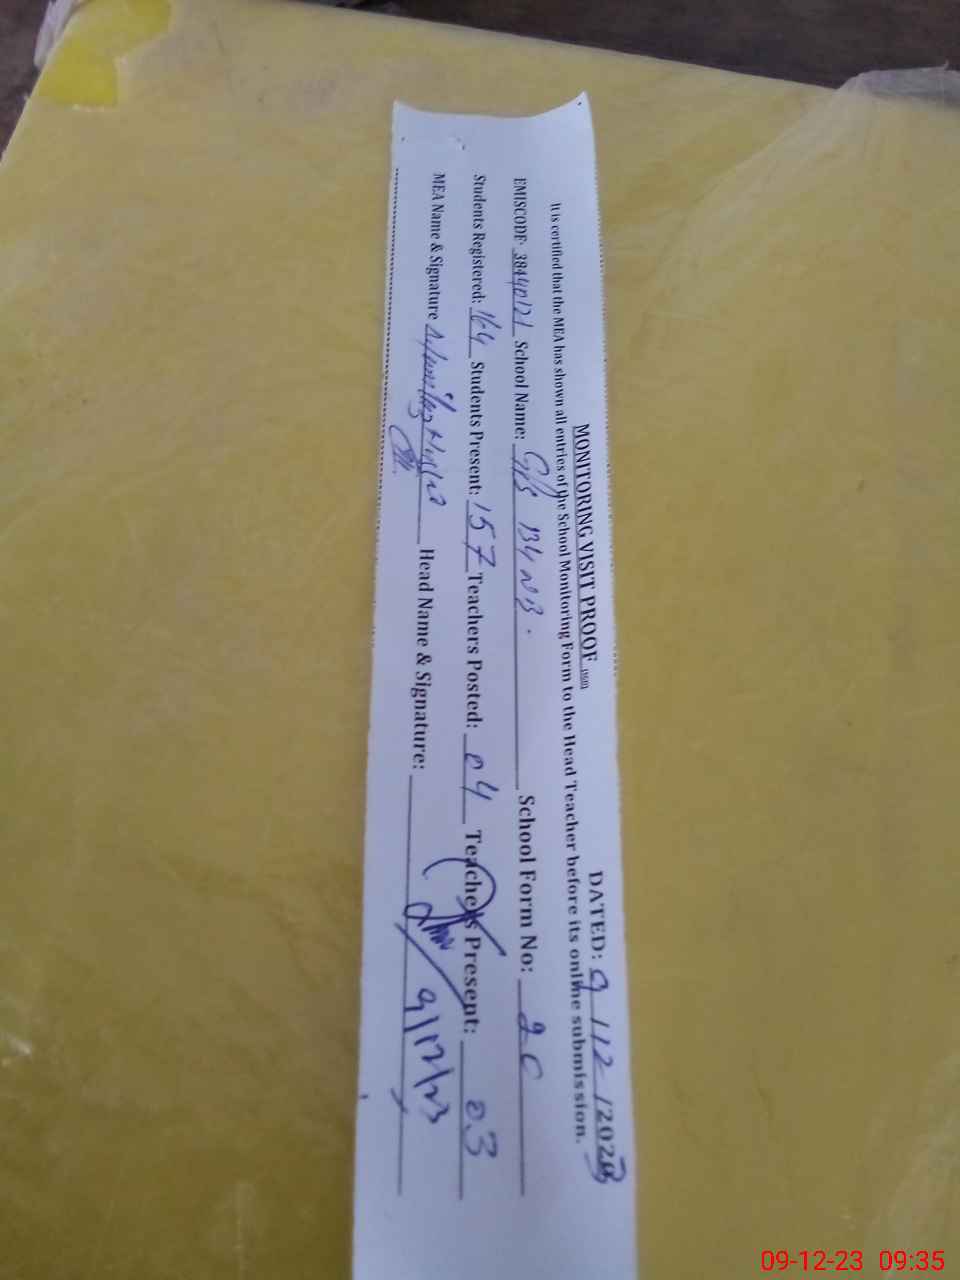 MONITORING VISIT PROOF DATED: 9 / 12 / 2023
It is certified that the MEA has shown all entries of the School Monitoring Form to the Head Teacher before its online submission.
EMISCODE: 38440121 School Name: GPS 134 NB. School Form No: 20
Students Registered: 164 Students Present: 157 Teachers Posted: 04 Teachers Present: 03
MEA Name & Signature Head Name & Signature: 9/12/23
09-12-23 09:35